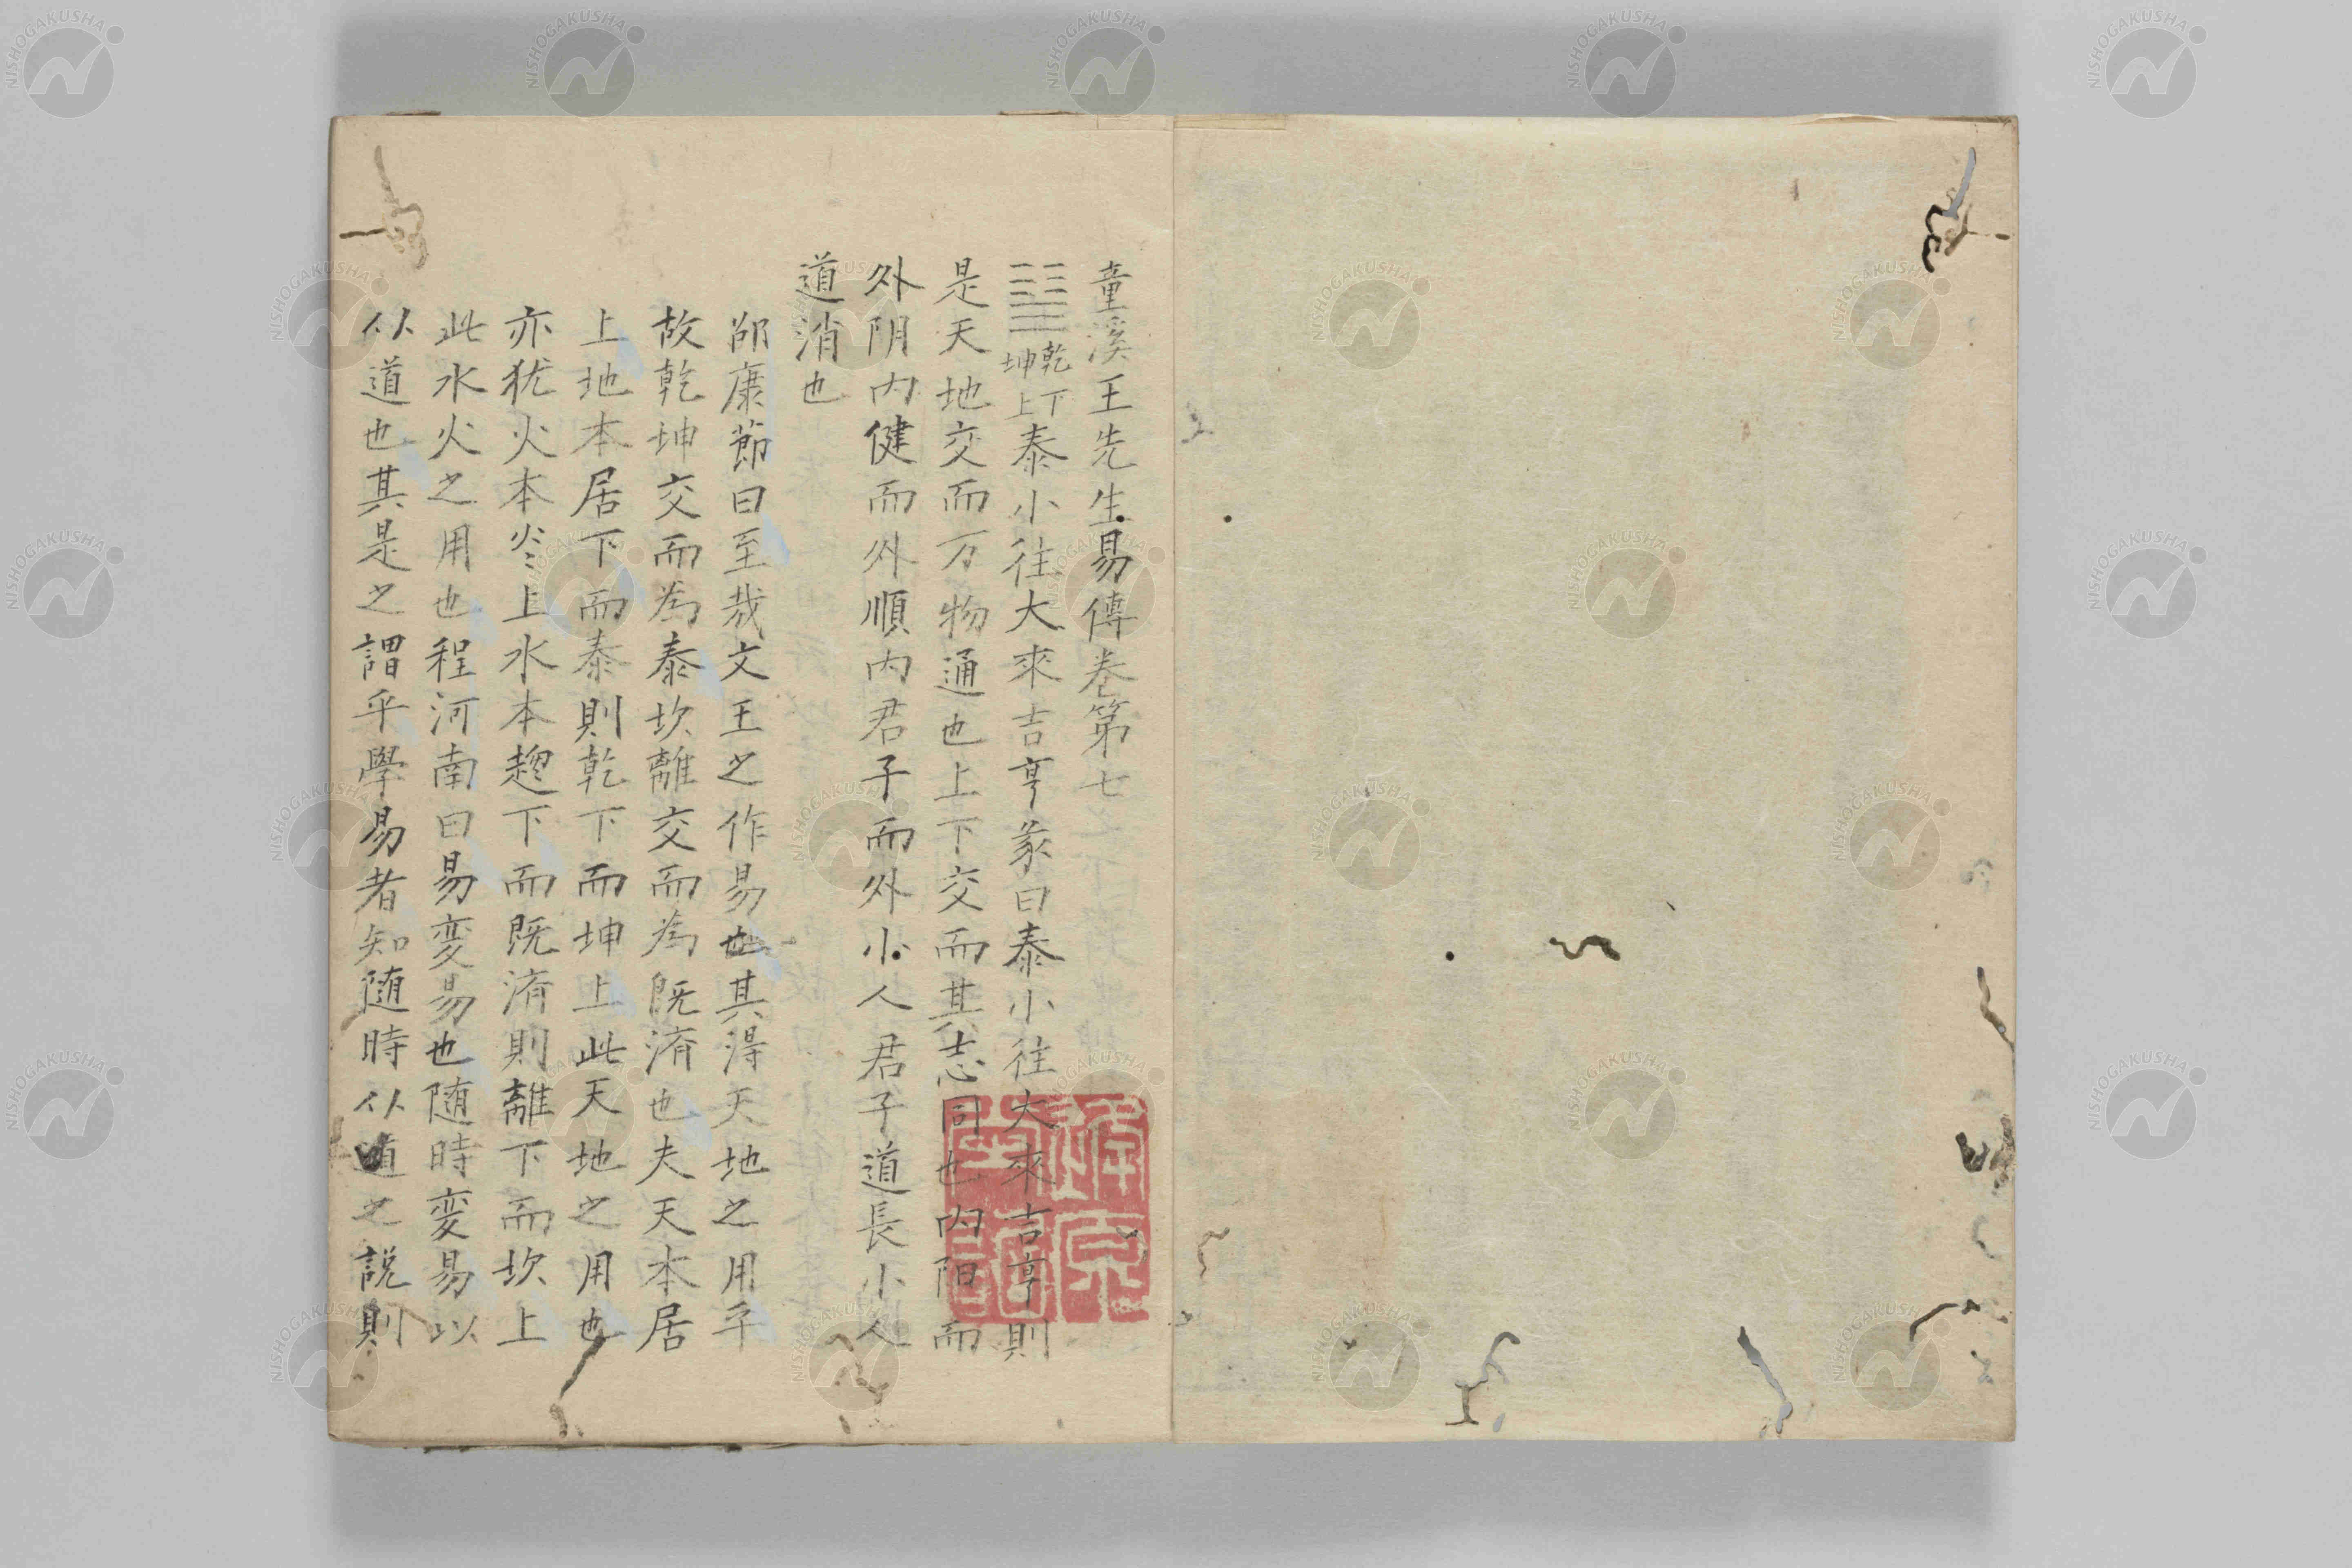 童溪王先生易傳卷第七
乾下坤上泰小往大來吉亨彖曰泰小往大來吉亨則
是天地交而万物通也上下交而其志同也内阳而
外阴内健而外順内君子而外小人君子道長小人
道消也
邵康節曰至哉文王之作易也其得天地之用乎
故乾坤交而為泰坎離交而為既濟也夫天本居
上地本居下而泰則乾下而坤上此天地之用也
亦犹火本炎上水本趍下而既濟則離下而坎上
此水火之用也程河南曰易変易也随時変易以
从道也其是之謂乎學易者知随時从道之説則
NISHOGAKUSHA